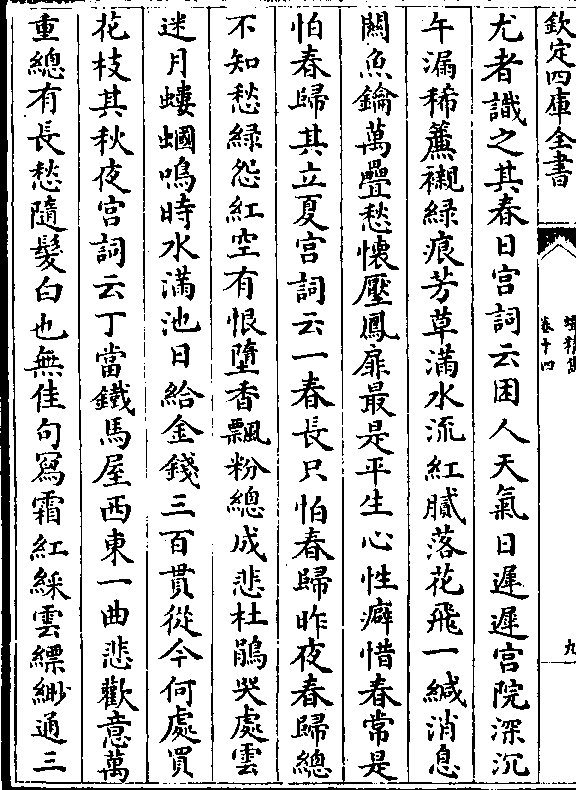 欽定四庫全書
卷十四
九
尤者識之其春日宮詞云困人天氣日遲遲宮院深沉
午漏稀簾襯綠痕芳草滿水流紅膩落花飛一緘消息
闗魚鑰萬疊愁懷壓鳳扉最是平生心性癖惜春常是
怕春歸其立夏宮詞云一春長只怕春歸昨夜春歸總
不知愁綠怨紅空有恨墮香飄粉總成悲杜鵑哭處雲
迷月螻蟈鳴時水滿池日給金錢三百貫從今何處買
花枝其秋夜宮詞云丁當鐵馬屋西東一曲悲歡意萬
重總有長愁隨髮白也無佳句寫霜紅綵雲縹緲通三